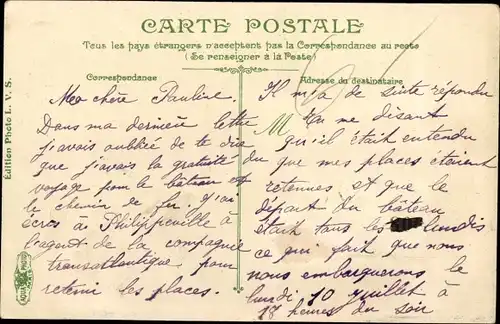 CARTE POSTALE
Tous les pays étrangers n'acceptent pas la Correspondance au recto
(Se renseigner à la Poste)
Correspondance
Adresse du destinataire
Ma chère Pauline
Dans ma dernière lettre
j'avais oubliée de te dire
que j'avais la gratuité du
voyage pour le bâteau et
le chemin de fer. J'ai
écris à Philippeville à
l'agent de la compagnie
transatlantique pour
retenir les places.
Il m'a de suite répondu
En me disant
qu'il était entendu
que mes places étaient
retennes et que le
départ du bâteau
était tous les lundis
ce qui fait que nous
nous embarquerons le
lundi 10 juillet à
18 heures du soir
Edition Photo L. V. S.